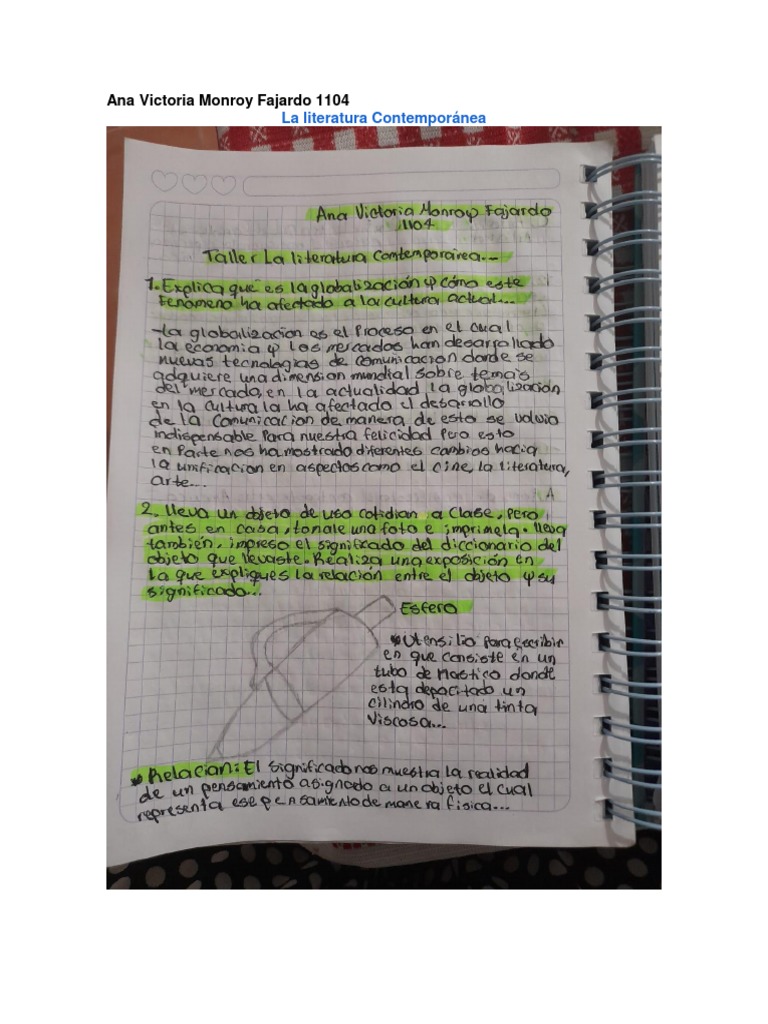 Ana Victoria Monroy Fajardo 1104
La literatura Contemporánea
Ana Victoria Monroy Fajardo
1104
Taller La literatura Contemporánea...
1. Explica que es la globalización y cómo este
Fenómeno ha afectado a la cultura actual...
-La globalización es el Proceso en el cual
la economia y los mercados han desarrollado
nuevas tecnologias de comunicacion donde se
adquiere una dimension mundial sobre temas
del mercado, en la actualidad la globalización
en la cultura la ha afectado el desarrollo
de la comunicacion de manera de esto se volvio
indispensable Para nuestra felicidad Pero esto
en Parte nos ha mostrado diferentes cambios hacia
la unificacion en aspectos como el cine, la literatura,
arte...
2. lleva un objeto de uso cotidian a clase, pero
antes en casa, tonale una foto e imprimela. lleva
también, impreso el significado del diccionario del
objeto que llevaste. Realiza una exposición en
la que expliques la relación entre el objeto y su
significado...
Esfero
Utensilio para escribir
en que consiste en un
tubo de Plastico donde
esta depocitado un
cilindro de una tinta
viscosa...
Relacian: El significado nos muestra la realidad
de un pensamiento asignado a un objeto el cual
representa ese pensamiento de manera fisica...